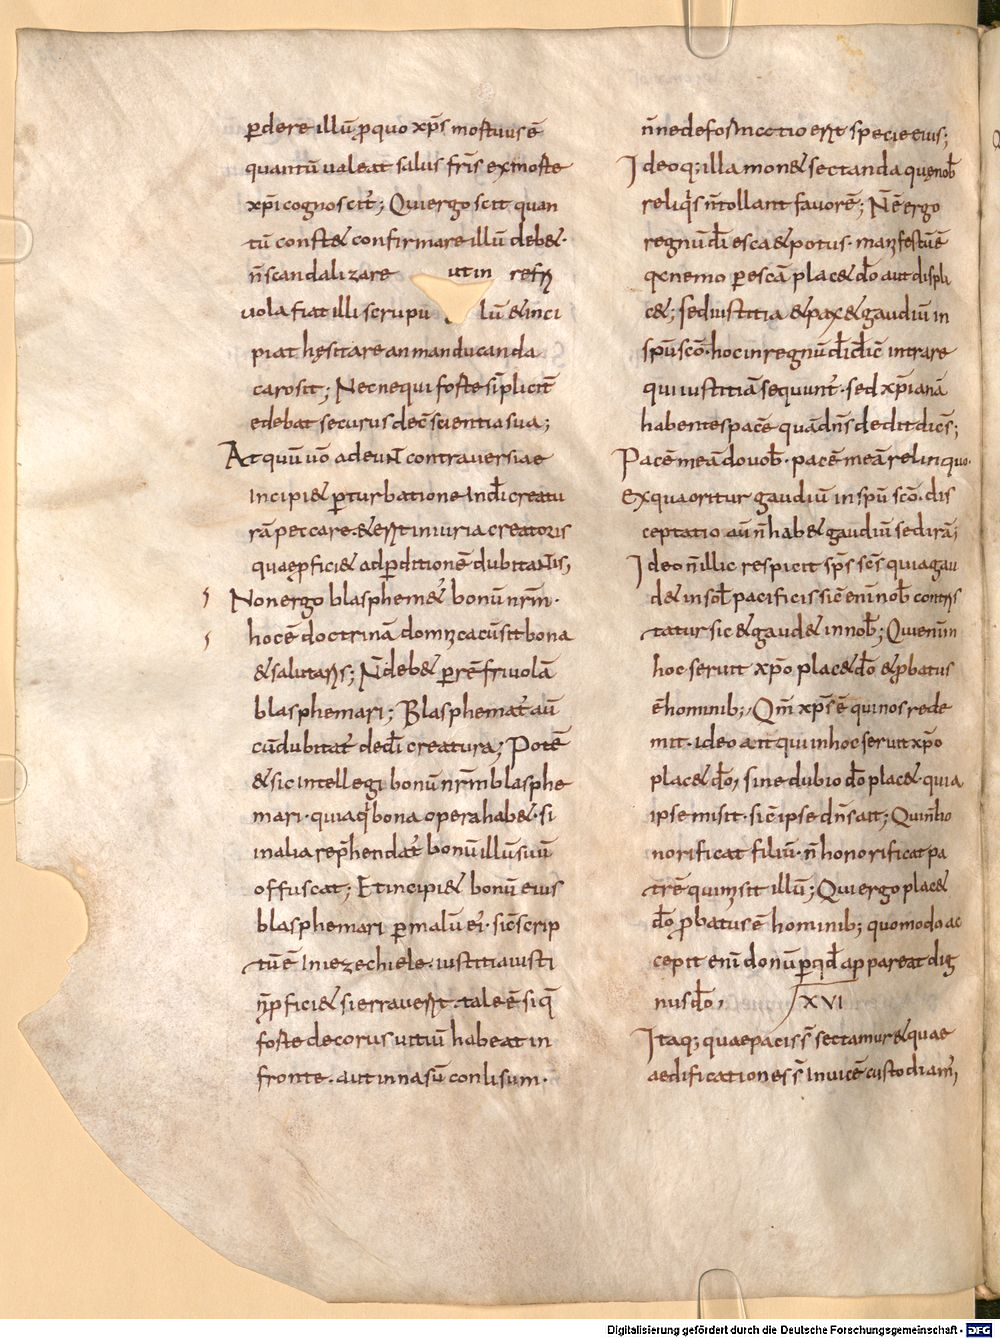 ꝑdere illū ꝓquo xp̄s mortuus ē
quantū ualeat salus fr̄is exmorte
xp̄i cognoscit᷒; Quiergo scit quan
tū constet confirmare illū debet·
n̄ scandalizare ut in re friuola
fiat illi scrupu lū & inci
piat hęsitare an manducanda
caro sit; Nec nequi forte simplicit̄
edebat securus dec̄ scientia sua;
At quū uō adeuNt contrauersiae
Incipi& ꝑturbatione Indī creatu
rā peccare· & erit iniuria creatoris
quae ꝓfici& adꝑditionē dubitaNtis;
Non ergo blasphem& bonū nr̄m·
hoc ē doctrinā domnica cū sit bona
& salutaris; N̄ deb& ꝑ rē friuolā
blasphemari; Blasphemat᷒ aū
cū dubitat᷒ dedī creatura; Potē
& sic intellegi bonū nr̄m blasphe
mari· quia q̄ bona opera hab&· si
in alia rep̄hendat᷒ bonū illū suū
offuscat; Et incipi& bonū eius
blasphemari ꝑ malū ei᷒· sic̄ scrip
tū ē In iezechiele· iustitia iusti
n̄ ꝓfici& si errauerit· tale ē siq̄
forte decorus uitiū habeat in
fronte· aut in nasū conlisum·
n̄ne deformatio erit speciei eius;
Ideoq; illa mon& sectanda quę nob̄
reliq̄s n̄ tollant fauorē; N̄ ē ergo
regnū dī esca & potus· manifestū ē
qa nemo ꝑ escā plac& dō aut displi
c&; sed iustitia & pax & gaudiū in
spū scō· hoc in regnū dī dic̄ intrare
qui iustitiā sequunt᷒· sed xp̄ianā
habentes pacē quā dn̄s dedit dicēs;
Pacē meā do uob̄· pacē meā relinquo·
Ex qua oritur gaudiū in spū scō· dis
ceptatio aū n̄ hab& gaudiū sed irā;
Ideo n̄ illic respicit sp̄s sc̄s quia gau
d& in sol pacificis sic̄ enī in nob̄ contris
tatur sic & gaud& in nob̄; Qui enim
hoc seruit xp̄o plac& dō & ꝓbatus
ē hominib;, Qm̄ xp̄s ē qui nos rede
mit· ideo ait qui in hoc seruit xp̄o
plac& dō, sine dubio dō plac&· quia
ipse misit· sic̄ ipse dn̄s ait; Qui n̄ ho
norificat filiū· n̄ honorificat pa
trē qui misit illū; Qui ergo plac&
dō ꝓbatus ē hominib; quomodo ac
cepit enī donū ꝑ qd̄ appareat dig
nus dō, XVI
Itaq; quae pacis s̄ sectamur & quae
aedificationes s̄ Inuicē custodiam᷒;
Digitalisierung gefördert durch die Deutsche Forschungsgemeinschaft - DFG